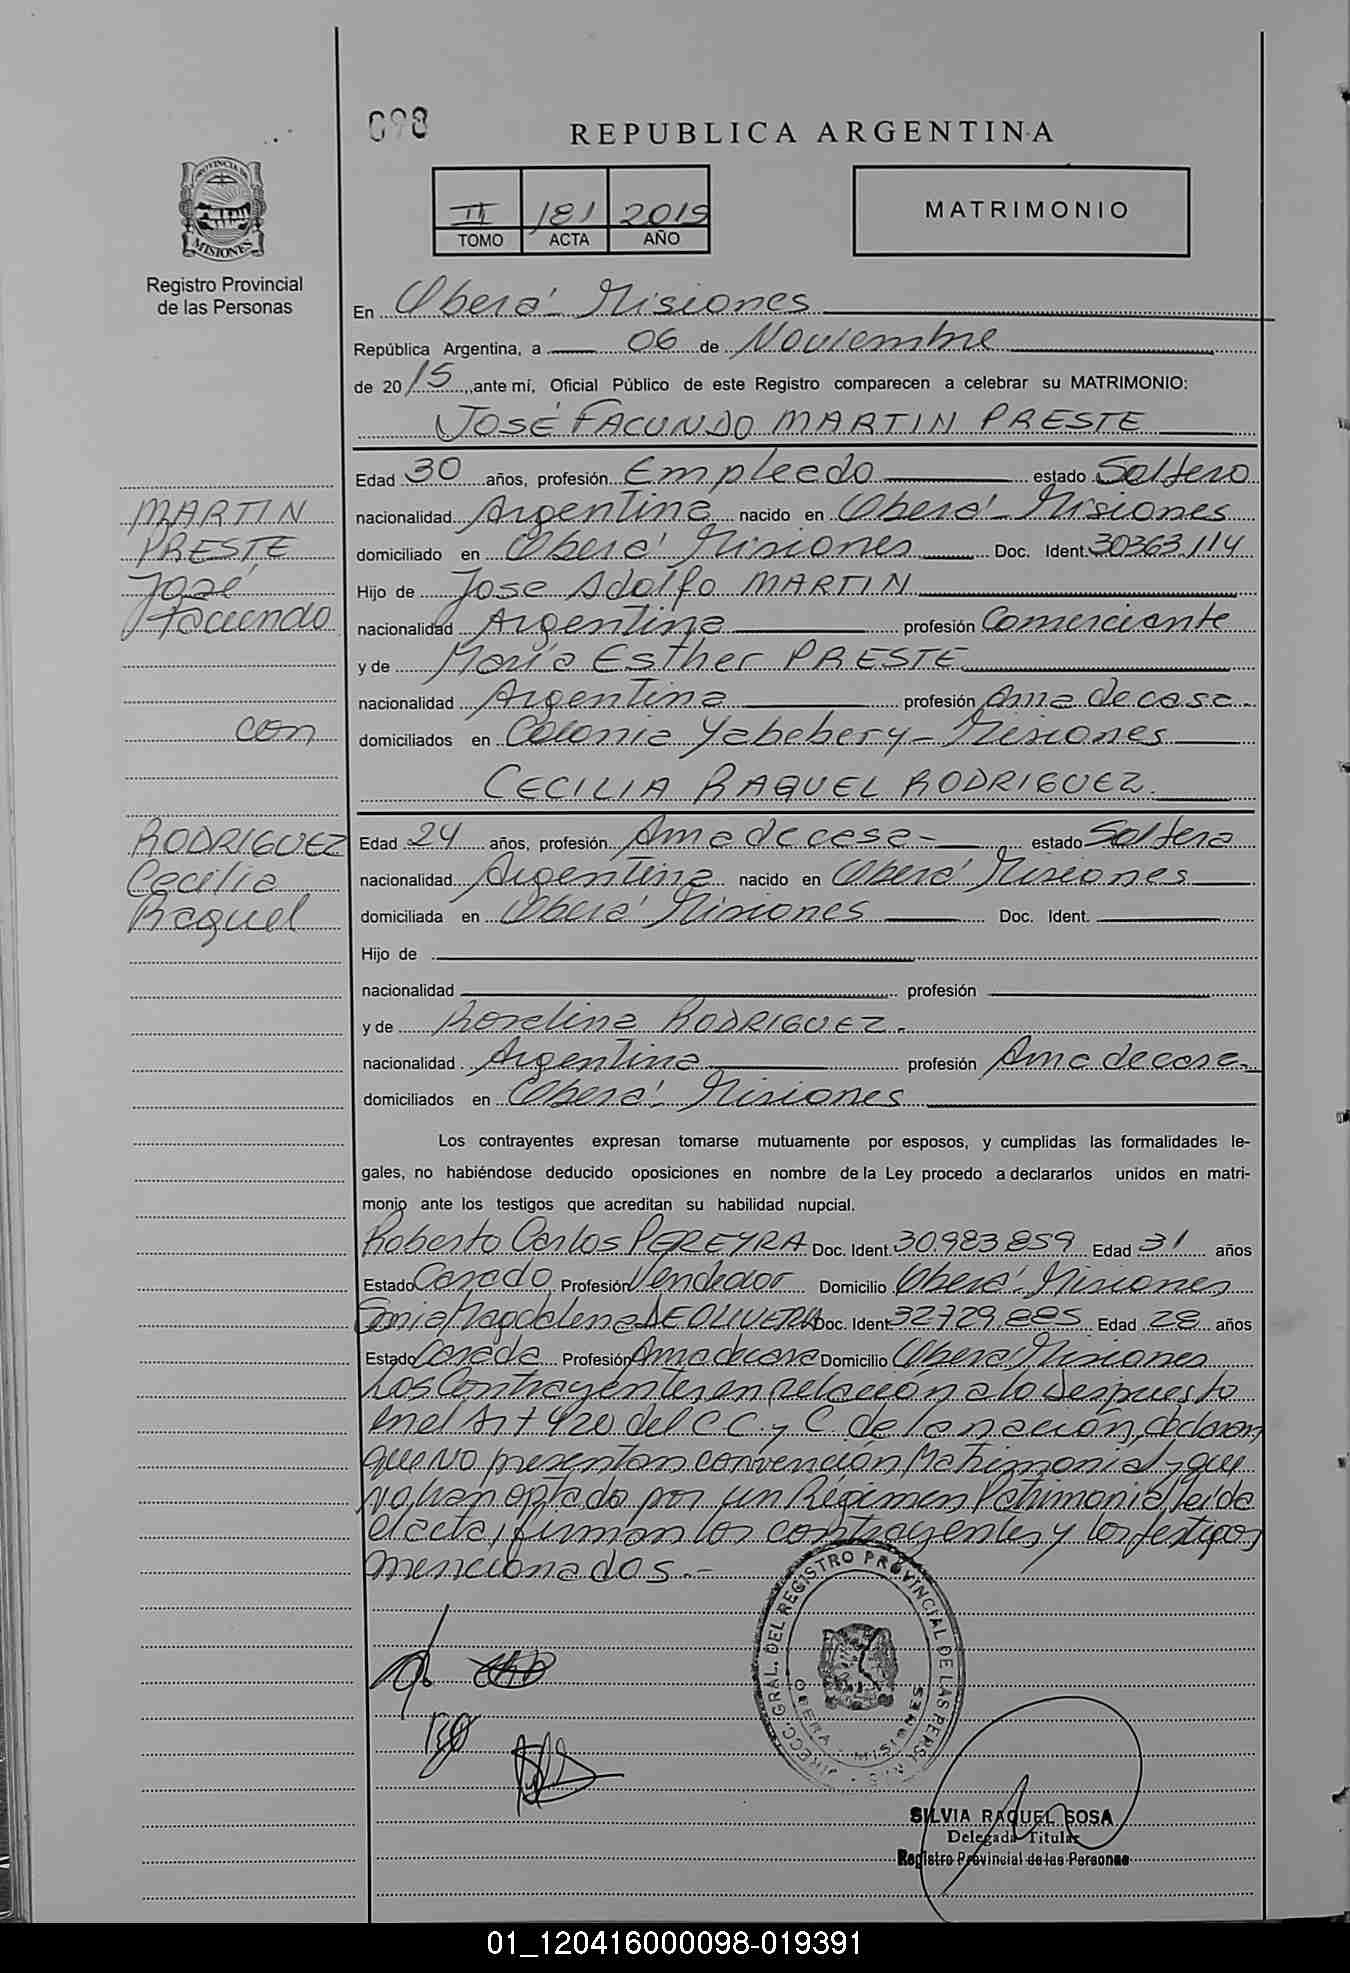 098
REPUBLICA ARGENTINA
II 181 2015
TOMO ACTA AÑO
MATRIMONIO
PROVINCIA DE
MISIONES
Registro Provincial
de las Personas
En Oberá - Misiones
República Argentina, a 06 de Noviembre
de 2015, ante mí, Oficial Público de este Registro comparecen a celebrar su MATRIMONIO:
JOSÉ FACUNDO MARTIN PRESTE
Edad 30 años, profesión Empleado estado Soltero
nacionalidad Argentina nacido en Oberá - Misiones
domiciliado en Oberá Misiones Doc. Ident. 30363.114
Hijo de Jose Adolfo MARTIN
nacionalidad Argentina profesión Comerciante
y de María Esther PRESTE
nacionalidad Argentina profesión Ama de casa.
domiciliados en Colonia Yabebery - Misiones
CECILIA RAQUEL RODRIGUEZ.
MARTIN
PRESTE
José
Facundo
con
RODRIGUEZ
Cecilia
Raquel
Edad 24 años, profesión Ama de casa - estado Soltera
nacionalidad Argentina nacido en Oberá Misiones
domiciliada en Oberá Misiones Doc. Ident.
Hijo de
nacionalidad profesión
y de Roselina RODRIGUEZ.
nacionalidad Argentina profesión Ama de casa -
domiciliados en Oberá - Misiones
Los contrayentes expresan tomarse mutuamente por esposos, y cumplidas las formalidades le-
gales, no habiéndose deducido oposiciones en nombre de la Ley procedo a declararlos unidos en matri-
monio ante los testigos que acreditan su habilidad nupcial.
Roberto Carlos PEREYRA Doc. Ident. 30.983.859 Edad 31 años
Estado Casado Profesión Vendedor Domicilio Oberá Misiones
Sonia Magdalena DE OLIVERA Doc. Ident. 32729.885 Edad 28 años
Estado Casada Profesión Ama de casa Domicilio Oberá Misiones
Los Contrayentes, en relación a lo despuesto
en el Art 420 del C C. y C. de la nación, declaran
que NO presentan convención Matrimonial y que
No han optado por un Régimen Patrimonial, leida
el acta, firman los contrayentes y los testigos
mencionados. -
DIRECC. GRAL. DEL REGISTRO PROVINCIAL DE LAS PERSONAS
OBERA - MISIONES
SILVIA RAQUEL SOSA
Delegada Titular
Registro Provincial de las Personas
01_120416000098-019391